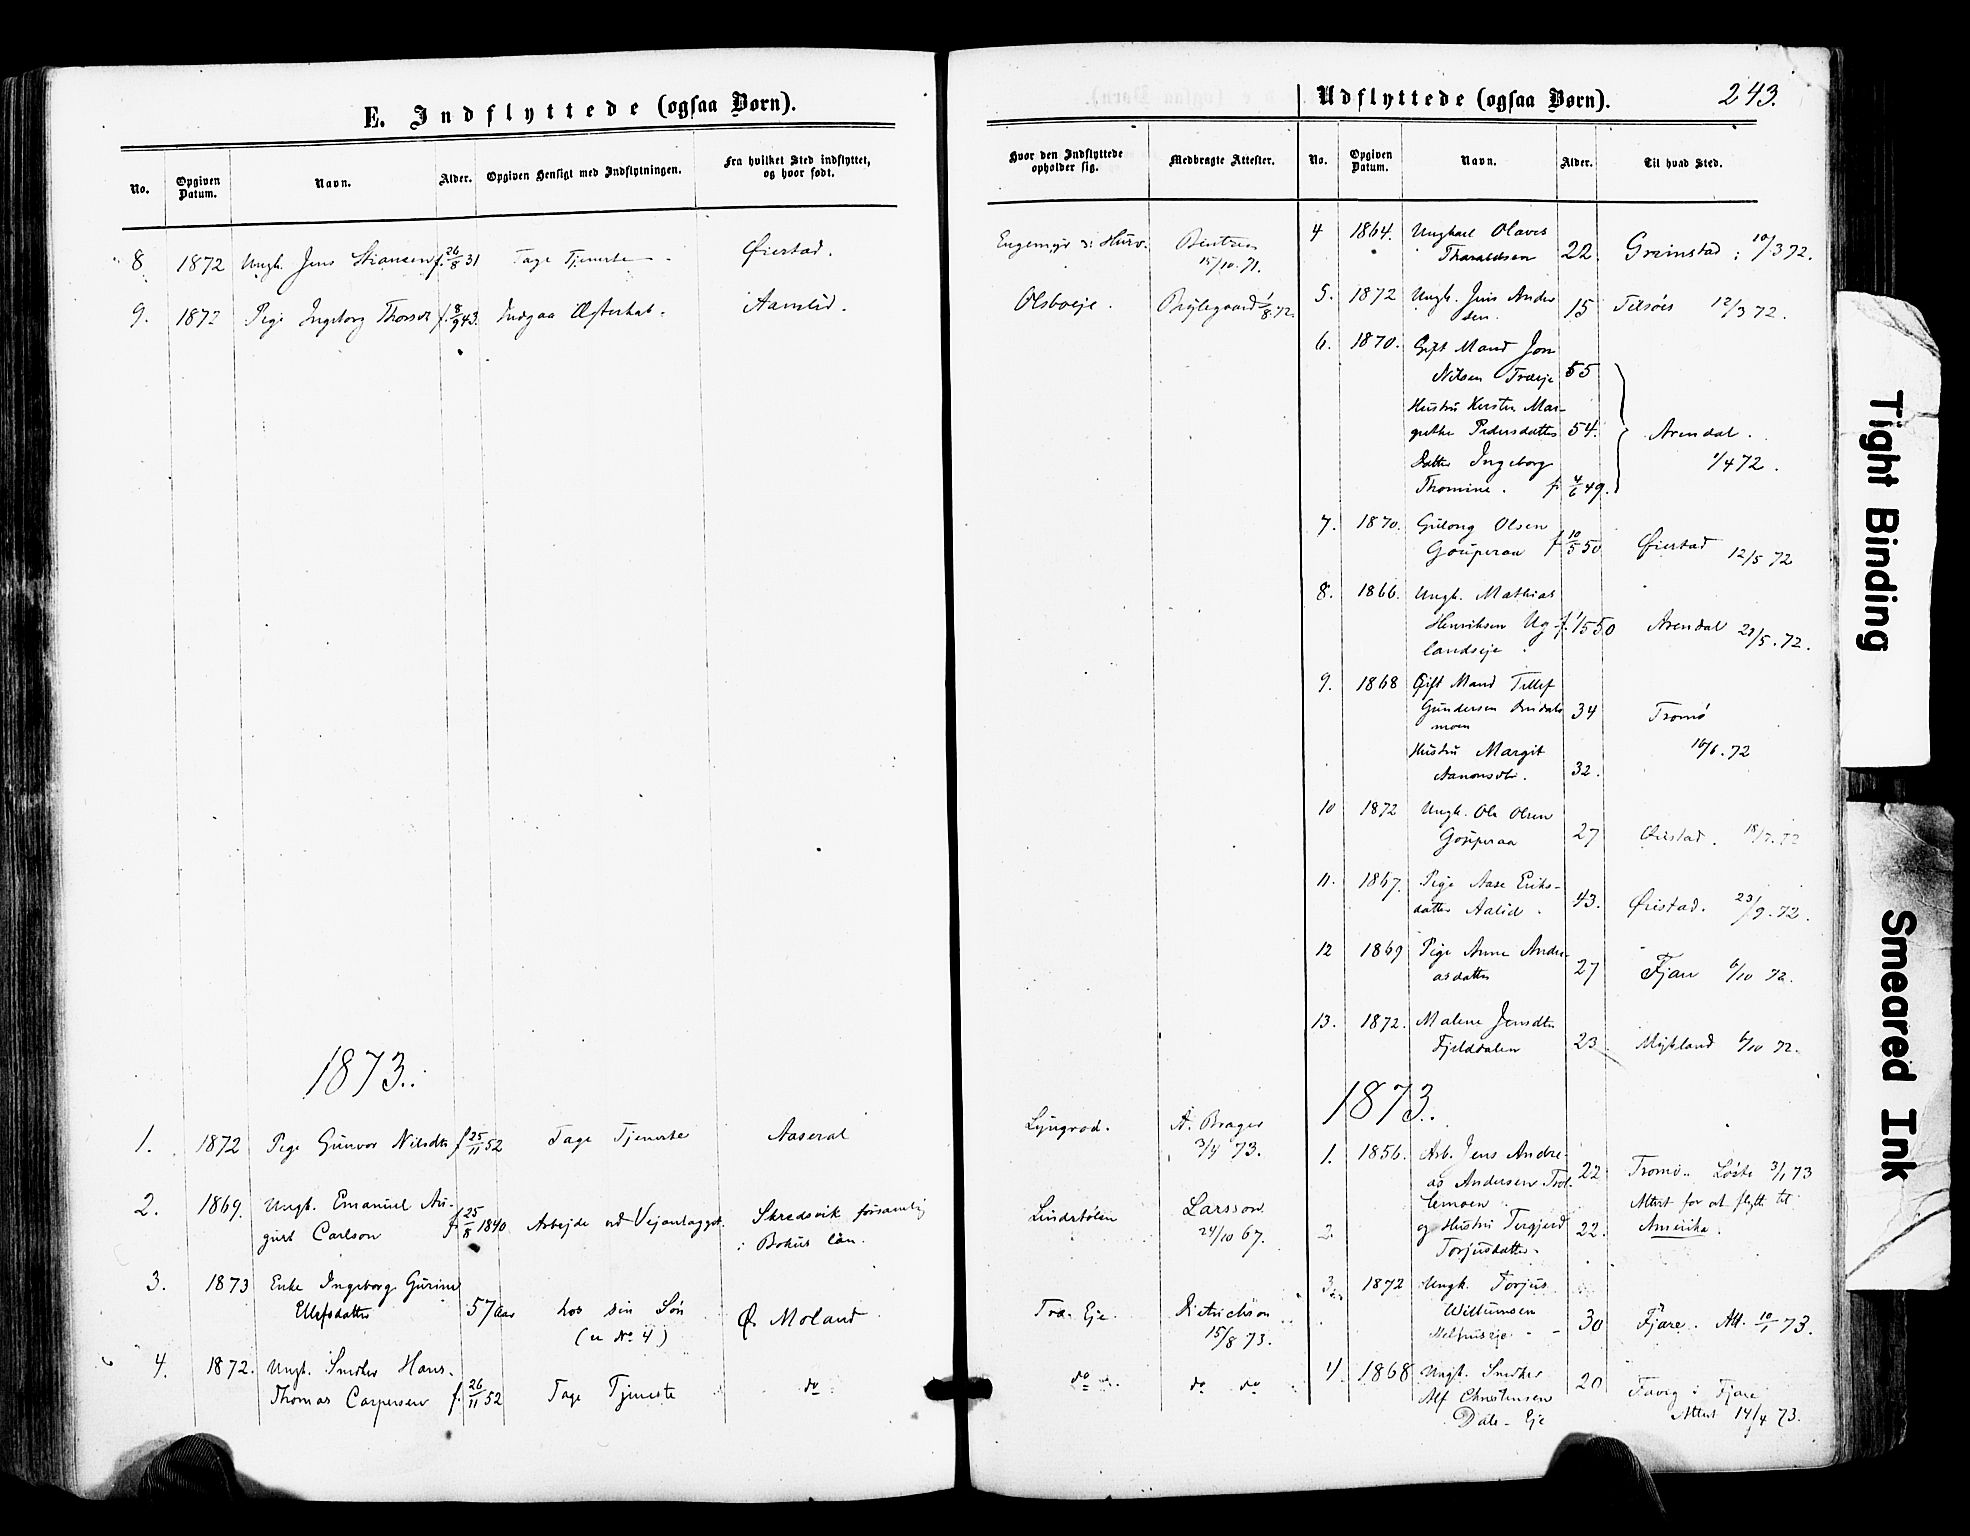 E. Indflyttede (ogsaa Børn).
No.
Opgiven Datum.
Navn.
Alder.
Opgiven Hensigt med Indflytningen.
Fra hvilket Sted indflyttet, og hvor født.
8 1872 Ungk. Jens f. 26/8 31 Tage Tjeneste Øiestad.
9. 1872 Pige Ingeborg f. 8/9 43. Indgaa Ægteskab. Aamlid.
1873.
1. 1872 Pige Gunvor Nilsdtr f 25/11 52 Tage Tjeneste Aaseral
2. 1869. Ungk. Emanuel Au-
gust Carlson f. 25/8 1840 Arbejde ved Vejanlægget. Skredsvik forsamlig
i Bohus län.
3. 1873 Enke Ingeborg Gurine
Ellefsdatter 57 Aar hos sin Søn Ø. Moland
(u No 4)
4. 1872. Ungk. Snedker Hans
Thomas Caspersen f. 26/11 52 Tage Tjeneste do
Udflyttede (ogsaa Børn). 243.
Hvor den Indflyttede opholder sig.
Medbragte Attester.
No.
Opgiven Datum.
Navn.
Alder.
Til hvad Sted.
Engemyr i Hurv. 15/10. 71.
Olsboeje. 1/8. 72.
Lyngrod. A. Brager
3/4 73.
Lindstølen Larsson
24/10 67.
Træ-Eje. Dietrichson
15/8 73.
do do do
4 1864. Ungkarl Olaves
Tharaldsen 22. Grimstad : 10/3 72.
5. 1872 Ungk. Jens Ander
sen. 15 12/3 72.
6. 1870. Gift Mand Jon
Nilsen Træeje 55
Hustru Kirsten Mar-
grethe Pedersdatter 54. Arendal.
1/4 72.
Datter Ingeborg
Thomine. f 4/6 49.
7. 1870. Gulong Olsen
Gouperaa f 10/5 50 Øiestad 12/5 72
8. 1866. Ungk. Mathias
Henriksen Ug-
landseje f. 1/5 50 Arendal 28/5. 72.
9. 1868 Gift Mand Tellef
Gundersen
moen 34 Tromø
16/6. 72
Hustru Margit
Aanonsdtr. 32.
10 1872 Ungk. Ole Olsen
Gouperaa 27 Øiestad. 18/7. 72
11. 1867. Pige Aase Eriks-
datter Aalid. 43. Øiestad. 23/9. 72.
12 1869 Pige Anne Andre-
asdatter 27 Fjære 6/10 72.
13. 1872. Malene Jensdtr
Fjelddalen 23 Mykland 6/10 72.
1873.
1. 1856. Arb. Jens Andre-
as Andersen Trol-
lemoen 22 Tromø.. Løste 3/1 73
Attest for at flytte til
Amerika.
2. og Hustru Tergjerd
Torjusdatter 22.
3. 1872 Ungk. Torjus
Willumsen
30 Fjære. Att. 10/1 73.
4. 1868 Ungk. Snedker
Alf Christensen
Dale-Eje 20 Fævig i Fjære
Attest 14/4 73.
Tight Binding
Smeared Ink